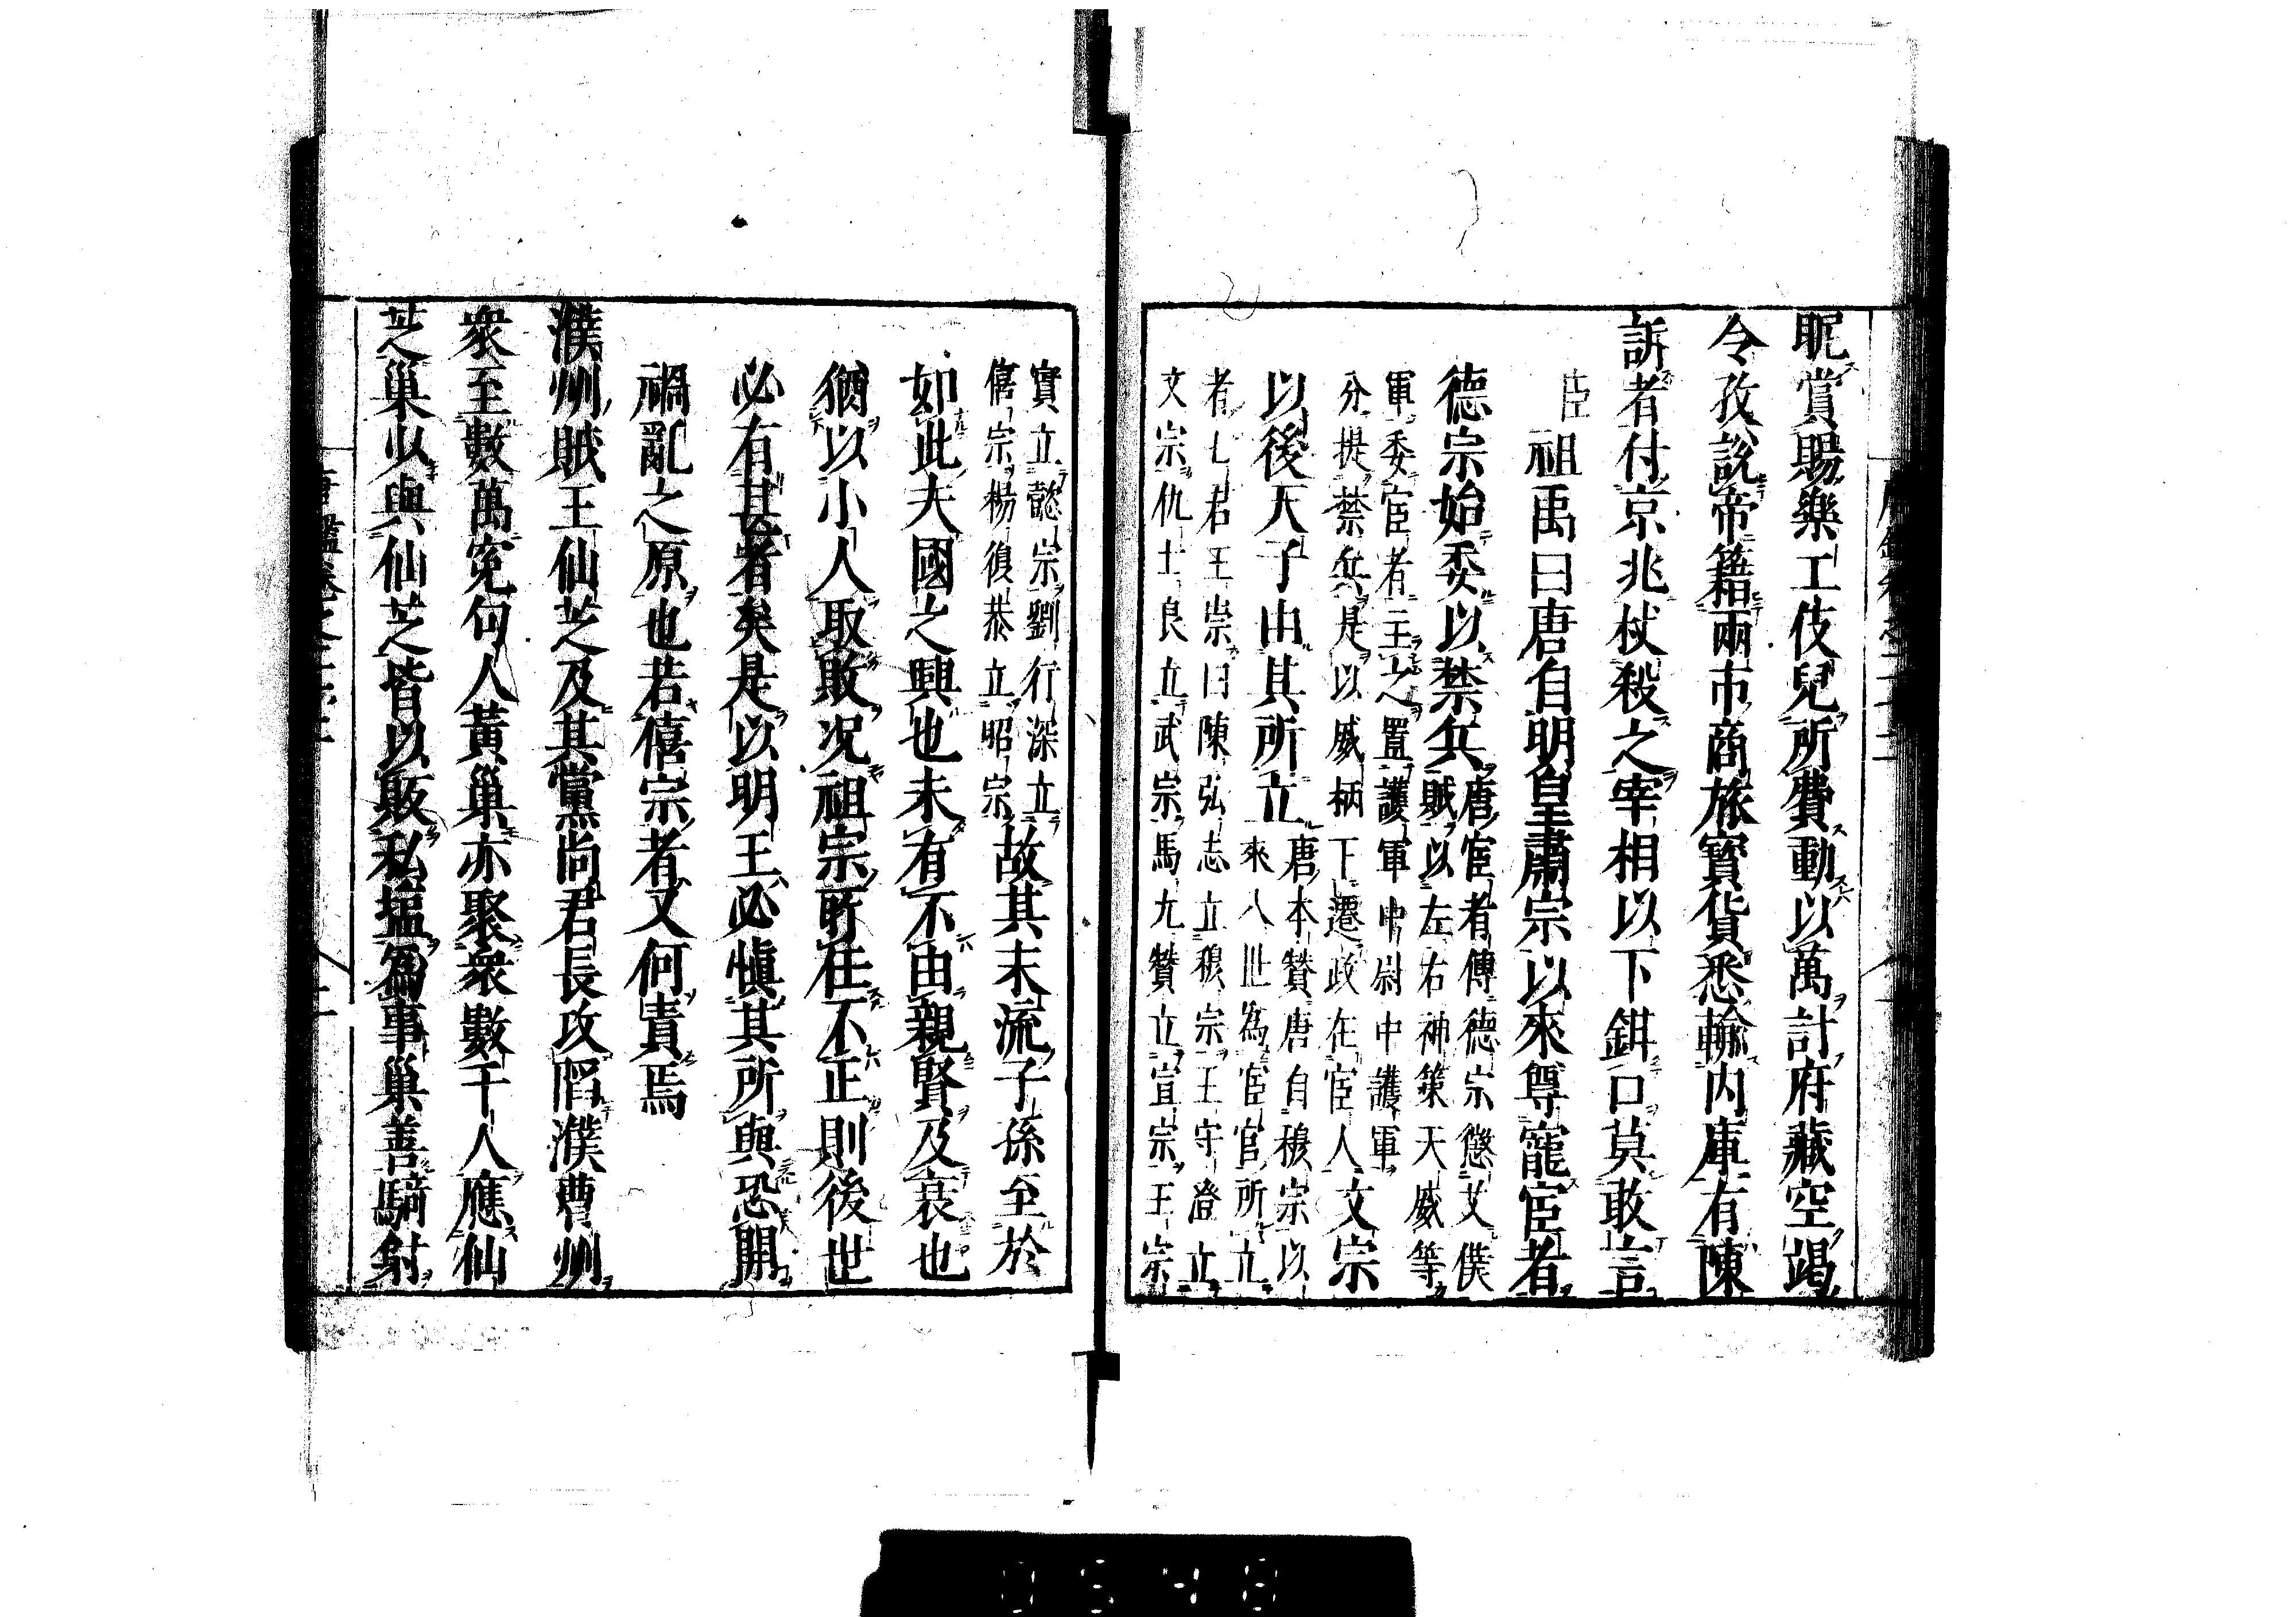 昵賞賜樂工伎兒所費動以萬計府藏空竭
令孜說帝籍兩市商旅寶貨悉輸内庫有陳
訴者付京兆杖殺之宰相以下鉗口莫敢言
臣祖禹曰唐自明皇肅宗以來尊寵宦者
德宗始委以禁兵唐宦者傳德宗懲艾僕賊以左右神策天威等
軍委宦者主之置護軍中尉中護軍分提禁兵是以威柄下遷政在宦人文宗
以後天子由其所立唐本贊唐自穆宗以來八世為宦官所立
者七君王崇曰陳弘志立穆宗王守澄立文宗仇士良立武宗馬元贄立宣宗王宗
實立懿宗劉行深立僖宗楊復恭立昭宗故其末流子孫至於
如此夫國之興也未有不由親賢及衰也
猶以小人取敗况祖宗所任不正則後世
必有甚者矣是以明王必慎其所與恐開
禍亂之原也若僖宗者又何責焉
濮州賊王仙芝及其黨尚君長攻陷濮曹州
衆至數萬寃句人黃巢亦聚衆數千人應仙
芝巢少與仙芝皆以販私塩為事巢善騎射